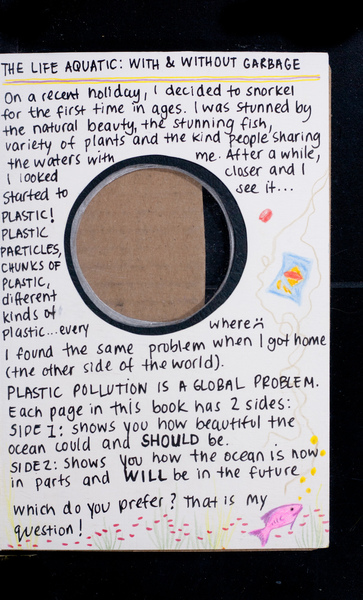 THE LIFE AQUATIC: WITH & WITHOUT GARBAGE
On a recent holiday, I decided to snorkel
for the first time in ages. I was stunned by
the natural beauty, the stunning fish,
variety of plants and the kind people sharing
the waters with me. After a while,
I looked closer and I
started to see it...
PLASTIC!
PLASTIC
PARTICLES,
CHUNKS OF
PLASTIC,
different
kinds of
plastic...every where
I found the same problem when I got home
(the other side of the world).
PLASTIC POLLUTION IS A GLOBAL PROBLEM.
Each page in this book has 2 sides:
SIDE 1: shows you how beautiful the
ocean could and SHOULD be.
SIDE 2: shows you how the ocean is now
in parts and WILL be in the future
which do you prefer? That is my
question!